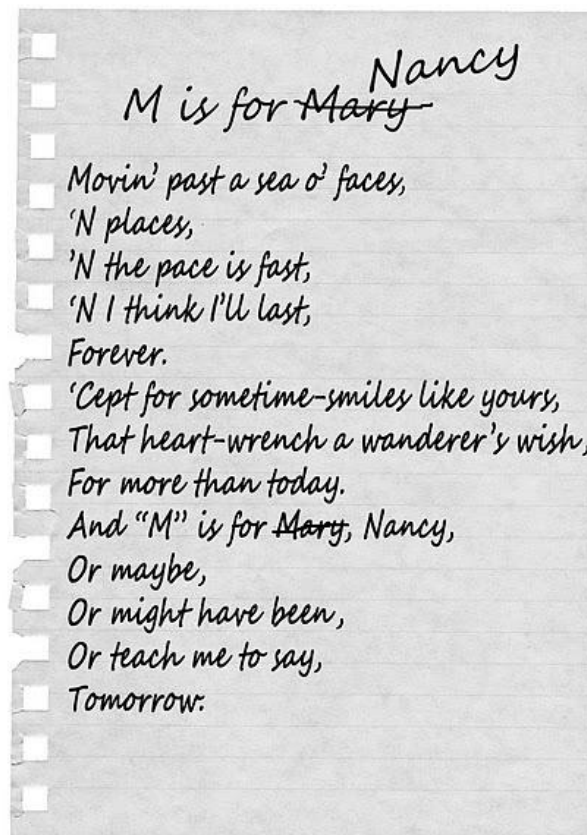 M is for ~~Mary~~ Nancy
Movin' past a sea o' faces,
'N places,
'N the pace is fast,
'N I think I'll last,
Forever.
'Cept for sometime-smiles like yours,
That heart-wrench a wanderer's wish,
For more than today.
And "M" is for ~~Mary~~, Nancy,
Or maybe,
Or might have been,
Or teach me to say,
Tomorrow.